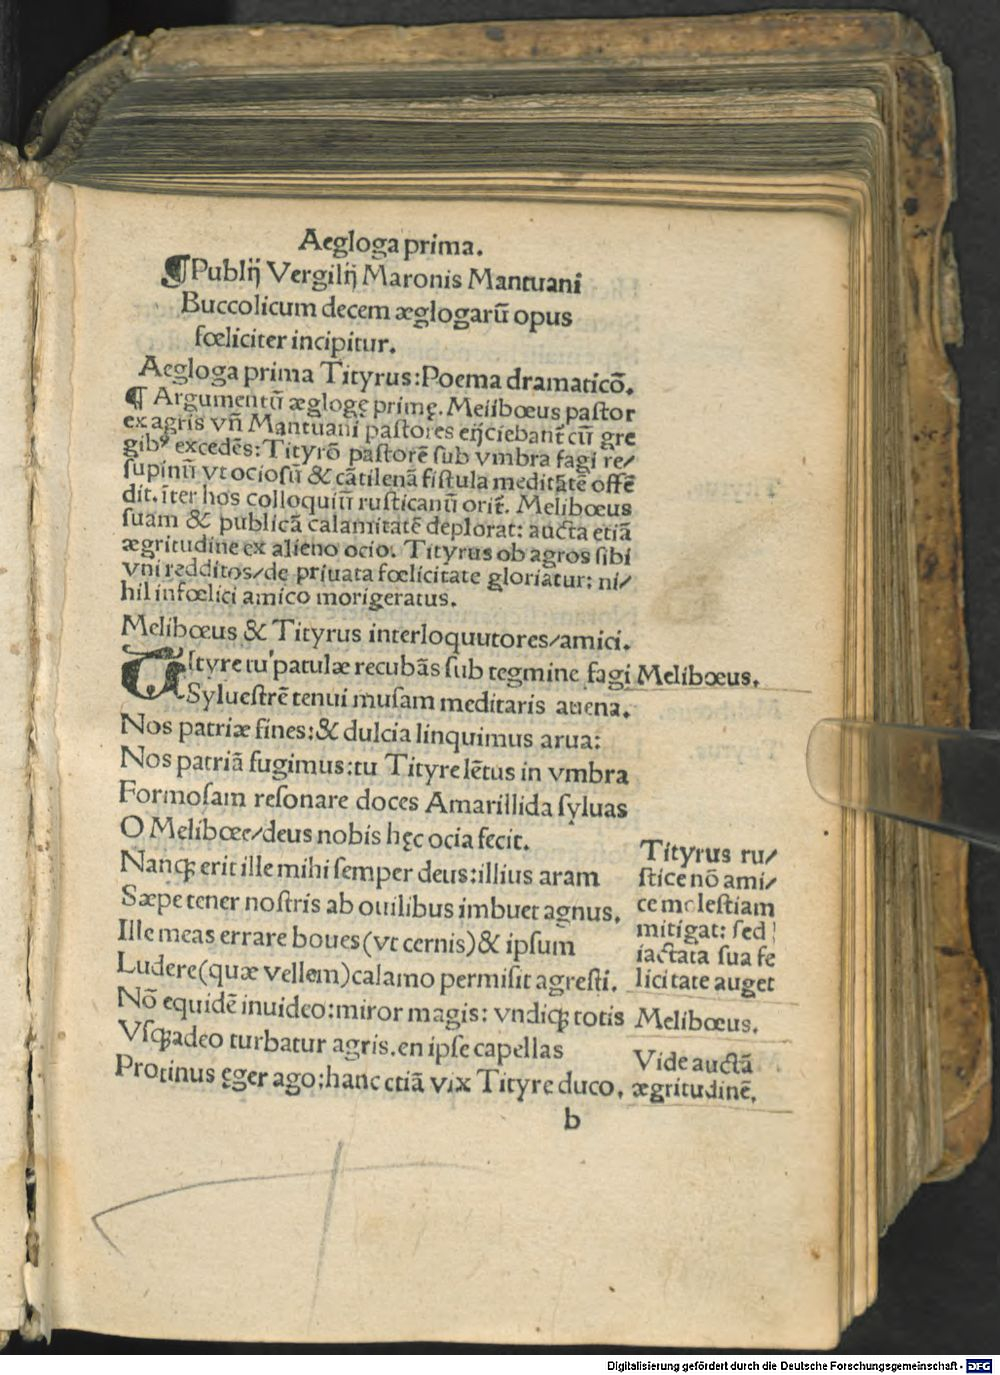 Aegloga prima.
¶ Publij Vergilij Maronis Mantuani
Buccolicum decem æglogarũ opus
fœliciter incipitur.
Aegloga prima Tityrus: Poema dramaticõ.
¶ Argumentũ æglogę primę. Melibœus paſtor
ex agris vñ Mantuani paſtores eijciebant̃ cũ gre
gibꝰ excedẽs: Tityrõ paſtorẽ ſub vmbra fagi re/
ſupinũ vt ocioſũ & cãtilenã fiſtula meditãtẽ offẽ
dit. ĩter hos colloquiũ ruſticanũ orit̃. Melibœus
ſuam & publicã calamitatẽ deplorat: aucta etiã
ægritudine ex alieno ocio. Tityrus ob agros ſibi
vni redditos/de priuata fœlicitate gloriatur: ni/
hil infœlici amico morigeratus.
Melibœus & Tityrus interloquutores/amici.
Tityre tu patulæ recubãs ſub tegmine fagi Melibœus.
Sylueſtrẽ tenui muſam meditaris auena.
Nos patriæ fines: & dulcia linquimus arua:
Nos patriã fugimus: tu Tityre lẽtus in vmbra
Formoſam reſonare doces Amarillida ſyluas
O Melibœe/deus nobis hęc ocia fecit.
Nanqꝫ erit ille mihi ſemper deus: illius aram
Sæpe tener noſtris ab ouilibus imbuet agnus.
Ille meas errare boues (vt cernis) & ipſum
Ludere (quæ vellem) calamo permiſit agreſti.
Tityrus ru/
ſtice nõ ami/
ce moleſtiam
mitigat: ſed
iactata ſua fe
licitate auget
Nõ equidẽ inuideo: miror magis: vndiqꝫ totis Melibœus.
Vſqꝫ adeo turbatur agris. en ipſe capellas
Protinus ęger ago: hanc etiã vix Tityre duco.
Vide auctã
ægritudinẽ.
b
Digitalisierung gefördert durch die Deutsche Forschungsgemeinschaft - DFG